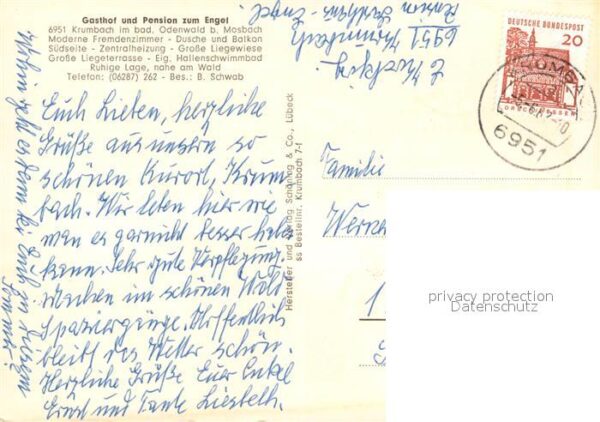 Gasthof und Pension zum Engel
6951 Krumbach im bad. Odenwald b. Mosbach
Moderne Fremdenzimmer - Dusche und Balkon
Südseite - Zentralheizung - Große Liegewiese
Große Liegeterrasse - Eig. Hallenschwimmbad
Ruhige Lage, nahe am Wald
Telefon: (06287) 262 - Bes.: B. Schwab
Euch Lieben, herzliche
Grüße aus unsren so
schönen Kurort, Krum-
bach. Wir leben hier wie
man es garnicht besser haben
kann. Sehr gute Verpflegung.
Machen im schönen Wald
Spaziergänge. Hoffentlich
bleibt das Wetter schön.
Herzliche Grüße Euer Onkel
Ernst und Tante Liesbeth.
wohin geht es denn bei Euch in diesem
Sommer?
Hersteller und Verlag Schöning & Co., Lübeck
ss Bestellnr. Krumbach 7-1
6951 Krumbach
Pension Engel
DEUTSCHE BUNDESPOST
20
6951
Familie
Werner
1
privacy protection
Datenschutz